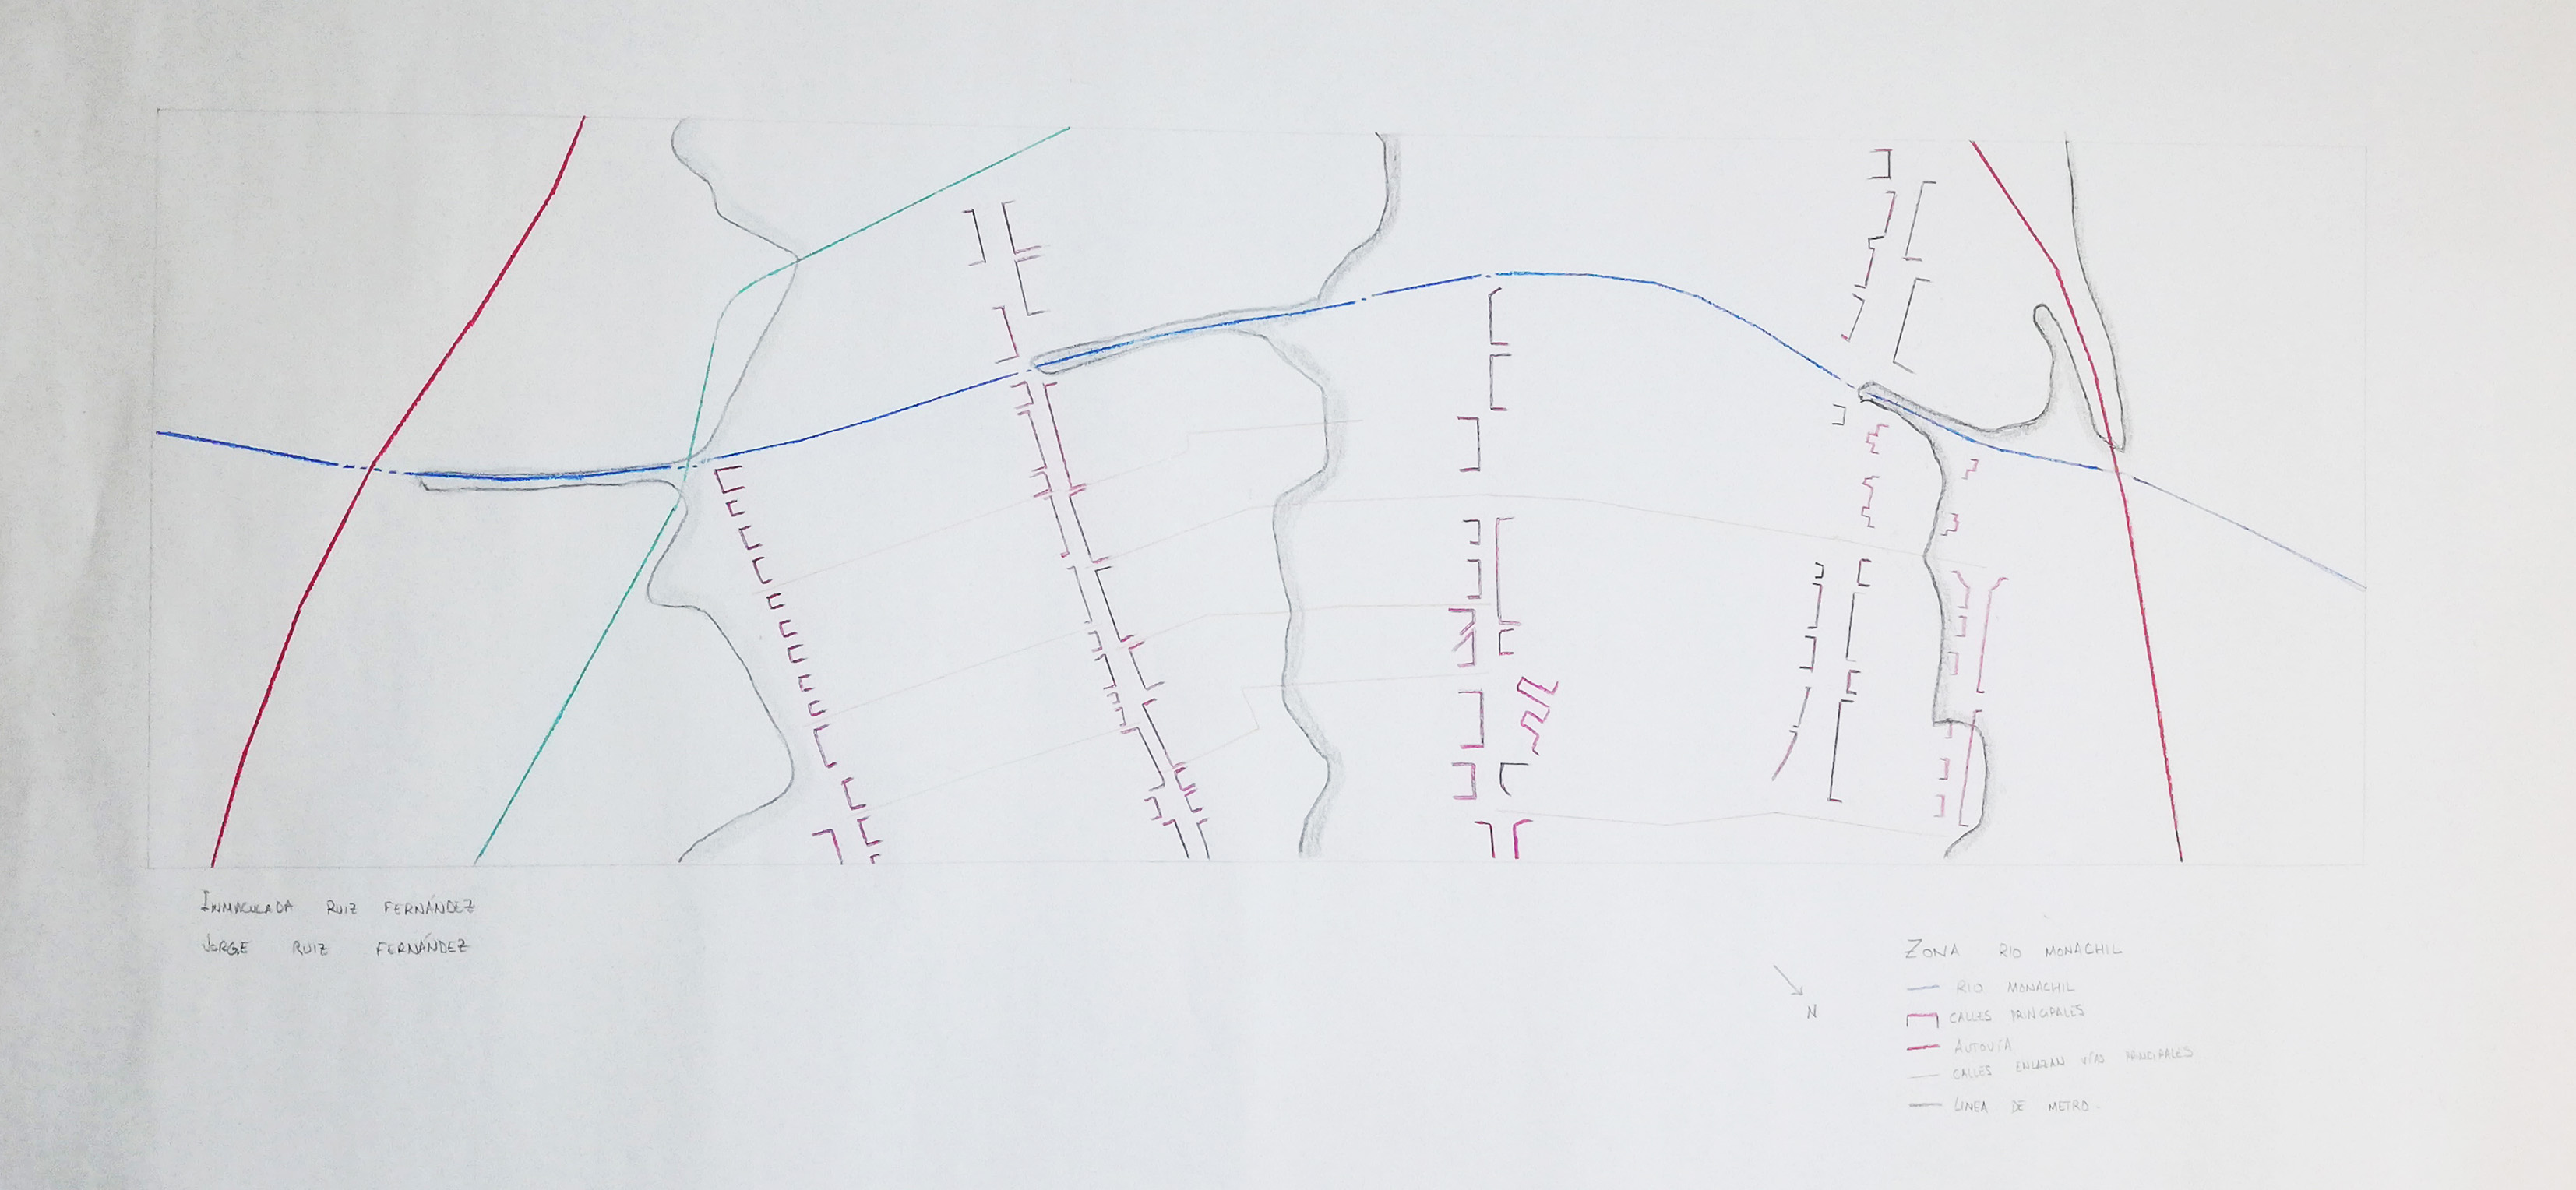 INMACULADA RUIZ FERNÁNDEZ
JORGE RUIZ FERNÁNDEZ
N
ZONA RIO MONACHIL
RIO MONACHIL
CALLES PRINCIPALES
AUTOVÍA
CALLES ENLAZAN VÍAS PRINCIPALES
LINEA DE METRO.